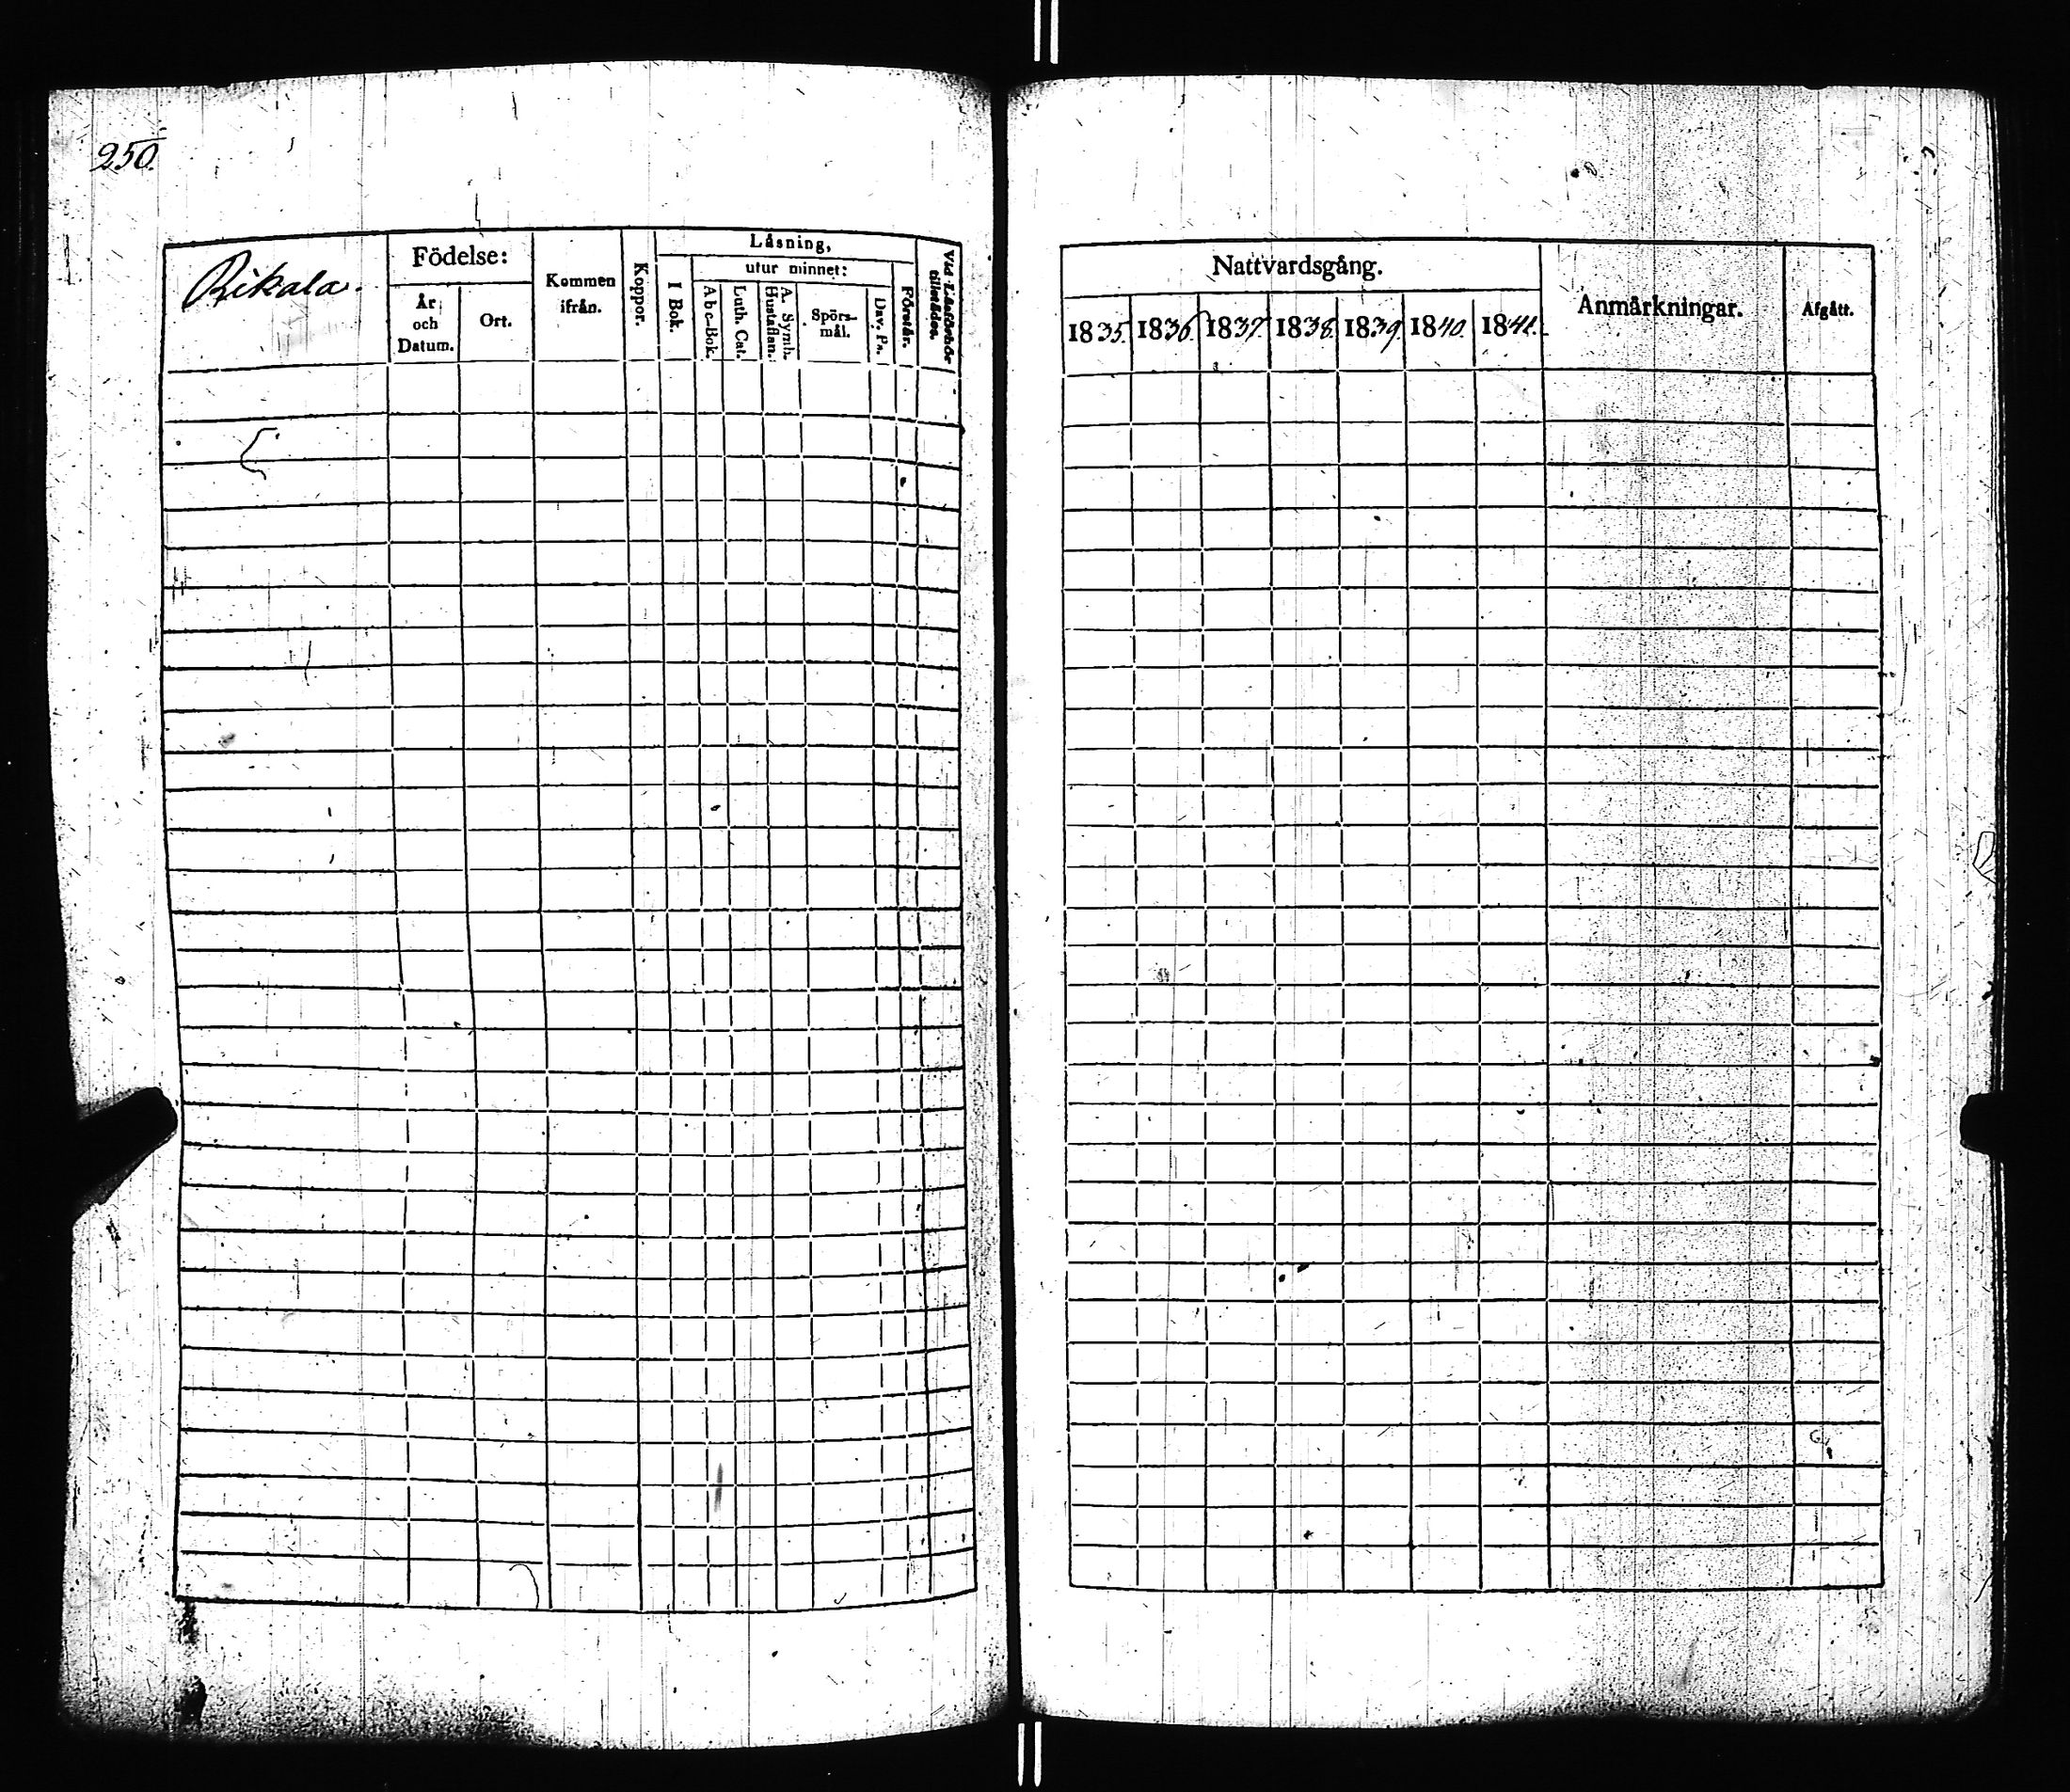 250.
Rikala.
Födelse:
År och Datum.
Ort.
Kommen ifrån.
Koppor.
Läsning,
I Bok.
utur minnet:
Abc-Bok.
Luth. Cat.
A. Symb. Hustaflan.
Spörs-mål.
Dav. Ps.
Förstår.
Vid Läsförhör tillstädes.
Nattvardsgång.
1835.
1836.
1837.
1838.
1839.
1840.
1841.
Anmärkningar.
Afgått.